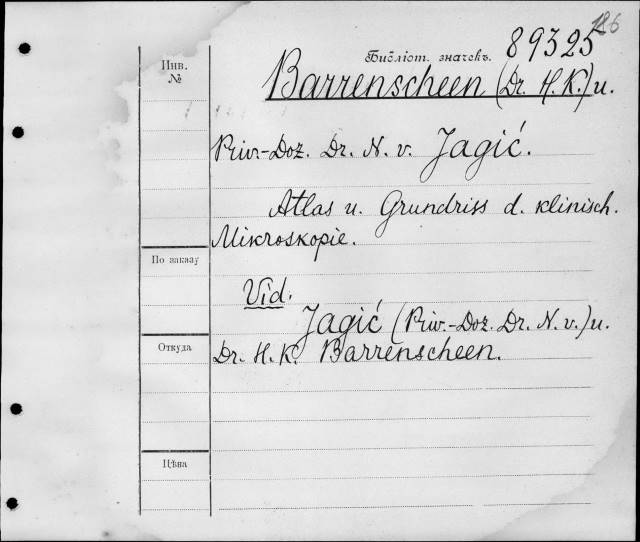 186
Библіот. значекъ. 89325
Инв.
№
Barrenscheen (Dr. H. K.) u.
Priv.-Doz. Dr. N. v. Jagić.
Atlas u. Grundriss d. klinisch.
Mikroskopie.
По заказу
Vid.
Jagić (Priv.-Doz. Dr. N. v.) u.
Откуда
Dr. H. K. Barrenscheen.
Цѣна